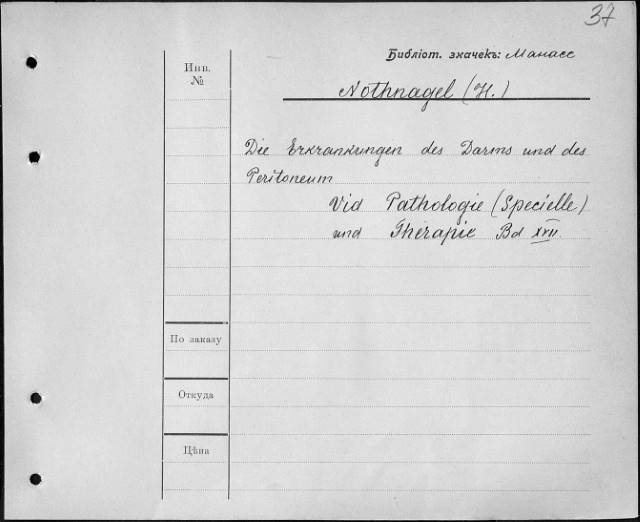 37
Библіот. значекъ: Манасс
Инв.
№
Nothnagel (H.)
Die Erkrankungen des Darms und des
Peritoneum
Vid Pathologie (Specielle)
und Therapie Bd XVII.
По заказу
Откуда
Цѣна